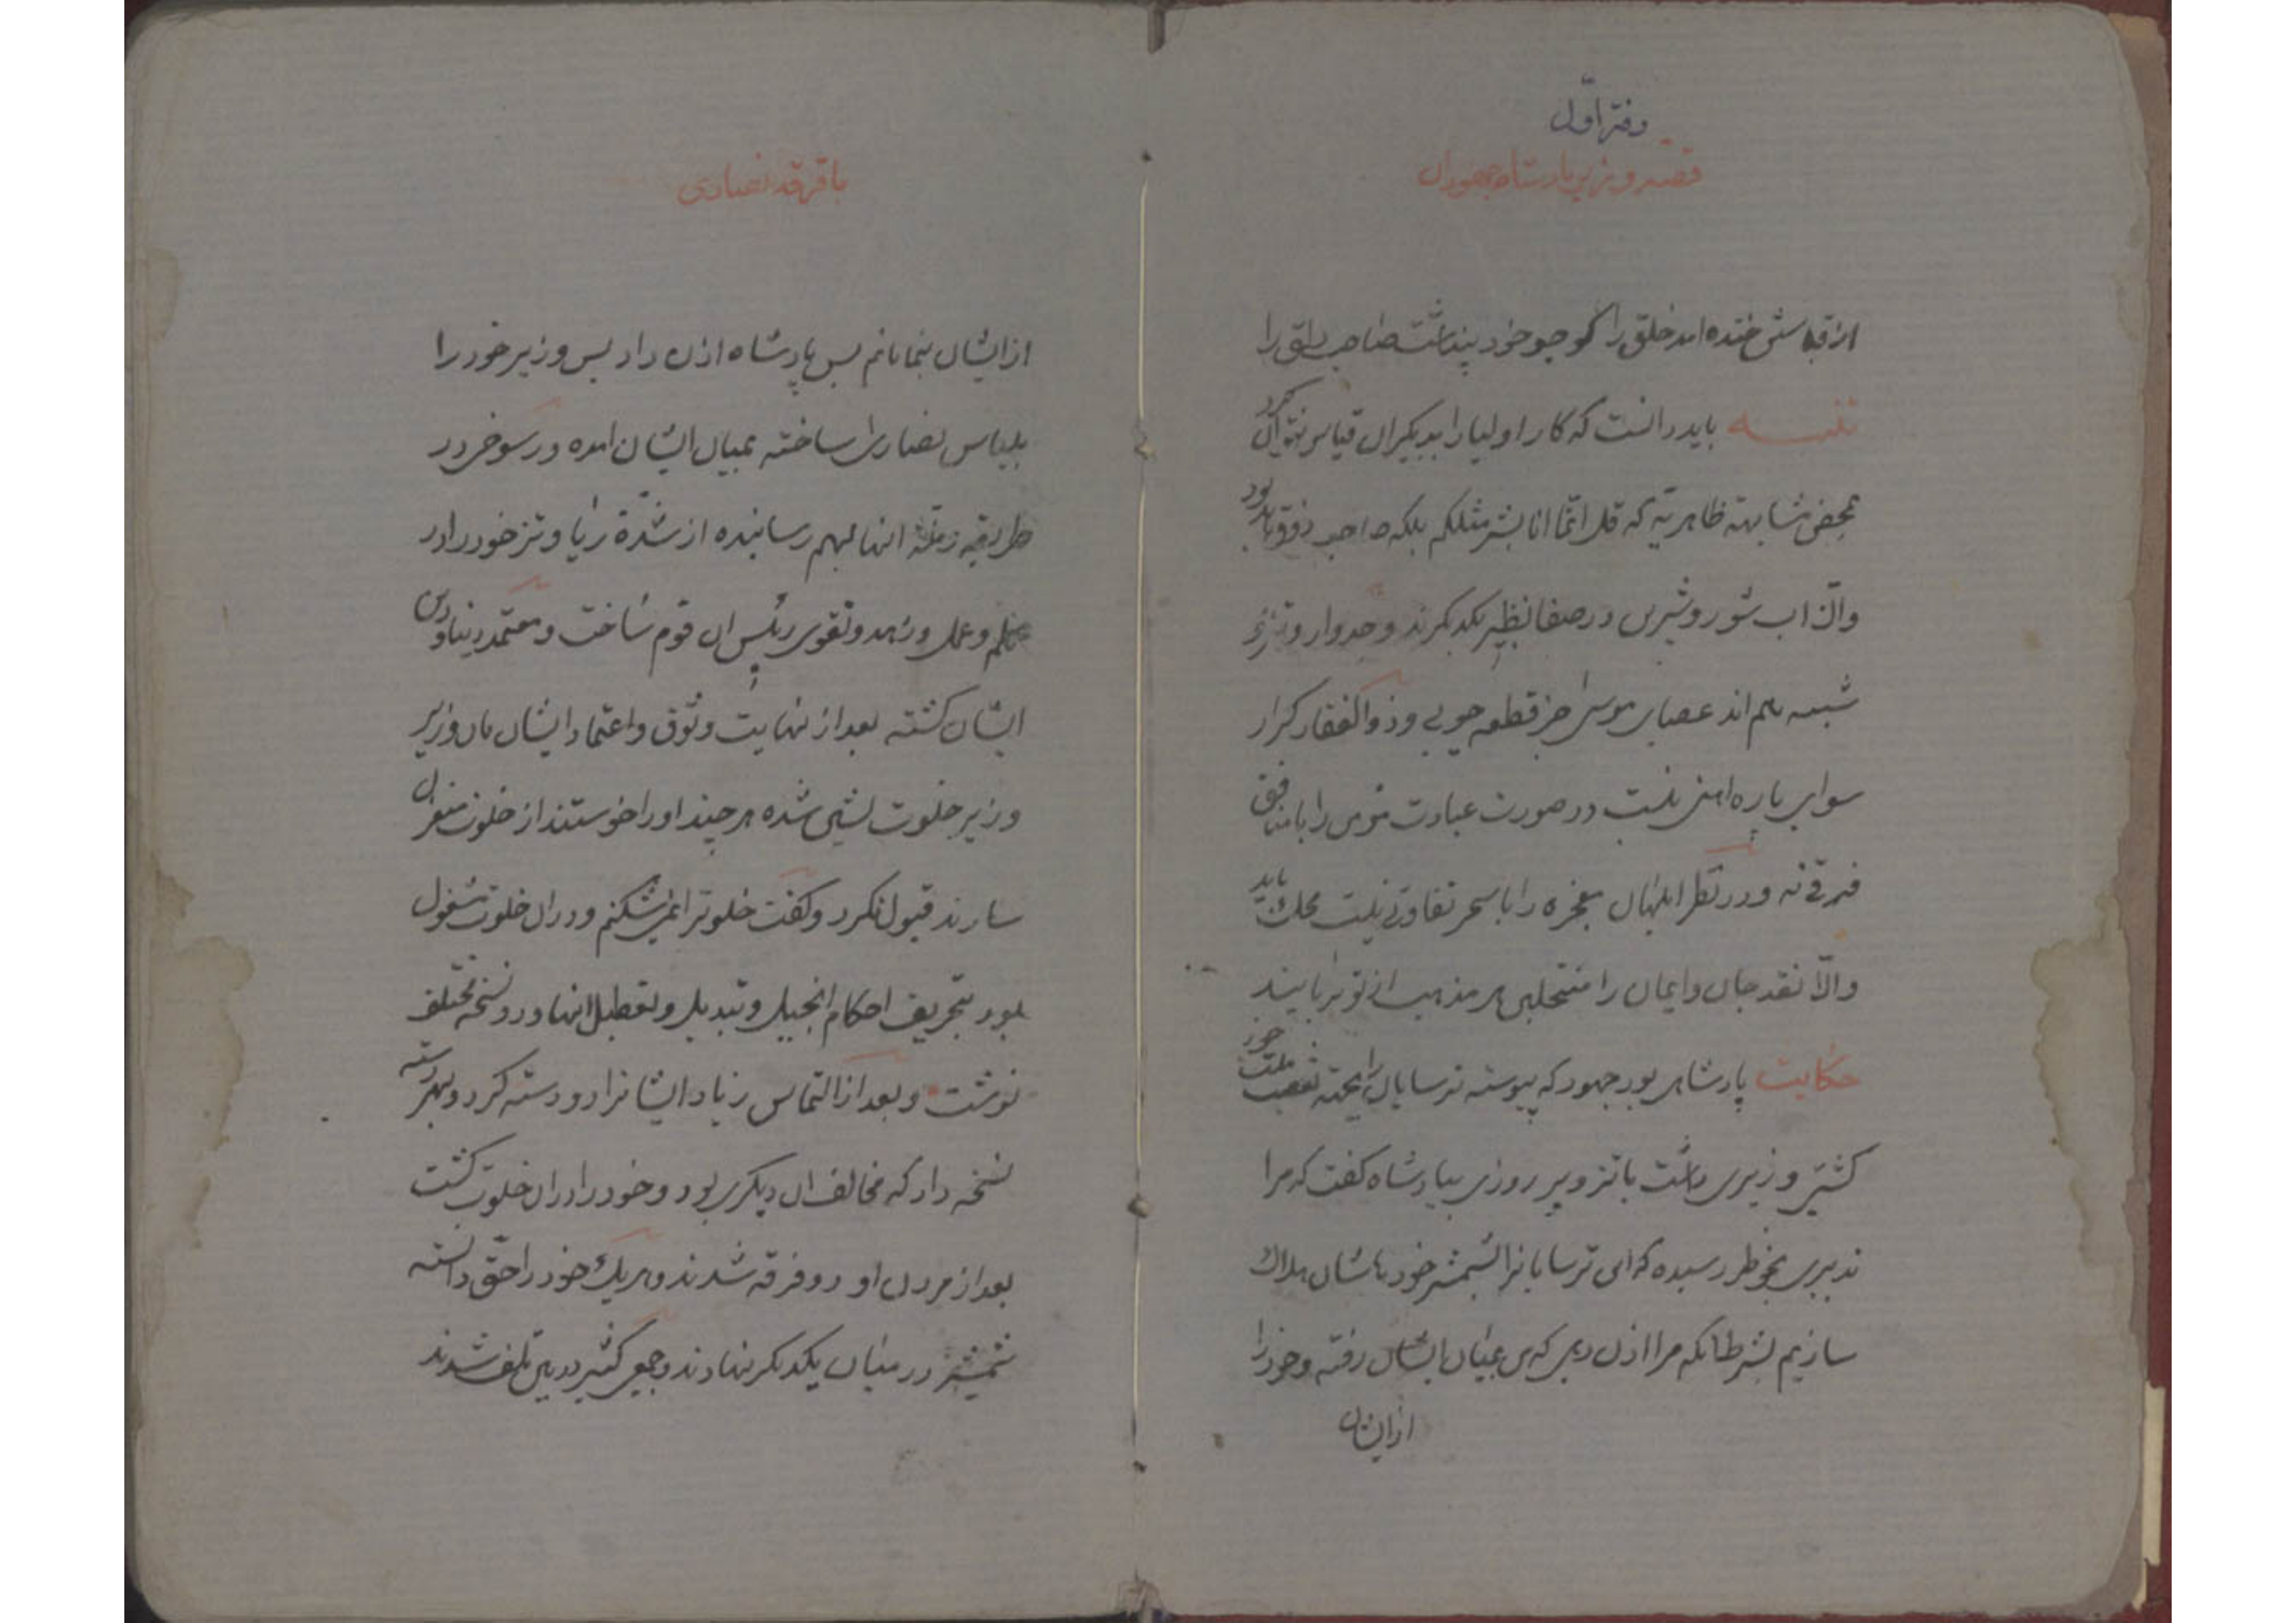 دفتر اوّل
قصّه وزیر پادشاه جهودان
از قیاسش خنده امد خلق را کو چو خود پنداشت صاحب دلق را
تنبیه باید دانست که کار اولیا را بدیکران قیاس نتوان کرد
بمحض مشابهة ظاهریّه که قل انّما انا بشر مثلکم بلکه صاحب ذوق باید بود
والّا اب شور و شیرین در صفا نظیر یکدیکرند وجدوار و
شبیه بهم اند عصای موسی جز قطعه چوبی و ذوالفقار کرار
سوای پاره اهنی نیست در صورت عبادت مؤمن را با منافق
فرقی نه و در نظر ابلهان معجزه را با سحر تفاوتی نیست محک باید
والّا نقد جان و ایمان را منتحلین هر مذهب از تو بربایند
حکایت پادشاهی بود جهود که پیوسته ترسایان را بجهة تعصب ملت خود
کشتی وزیری داشت با تزویر روزی بپادشاه کفت که مرا
تدبیری بخاطر رسیده که این ترسایانرا بشمشیر خودشان هلاک
سازیم بشرطانکه مرا اذن دهی که من بمیان ایشان رفته و خود را
از ایشان
با فرقه نصاری
از ایشان بنمایانم پس پادشاه اذن داد پس وزیر خود را
بلباس نصاری ساخته بمیان ایشان امده و رسوخی در
طریقه انها بهم رسانیده از شدّة ریا و تز خود را در
علم و عمل و زهد و تقوی رئیس ان قوم ساخت و معتمد دنیا و دین
ایشان کشته بعد از نهایت وثوق و اعتماد ایشان بان وزیر
وزیر خلوت نشین شده هر چند او را خواستند از خلوت منعزل
سازند قبول نکرد و کفت خلوترا نمیشکنم و در ان خلوت مشغول
بود بتحریف احکام انجیل و تبدیل و تعطیل انها و دو نسخه مختلف
نوشت و بعد از التماس زیاد ایشانرا دو دسته کرد و بهر دسته
نسخه داد که مخالف ان دیکری بود و خود را در ان خلوت کشت
بعد از مردن او دو فرقه شدند و هر یک خود را حقّ دانسته
شمشیر در میان یکدیکر نهادند و جمعی کثیر در بین تلف شدند